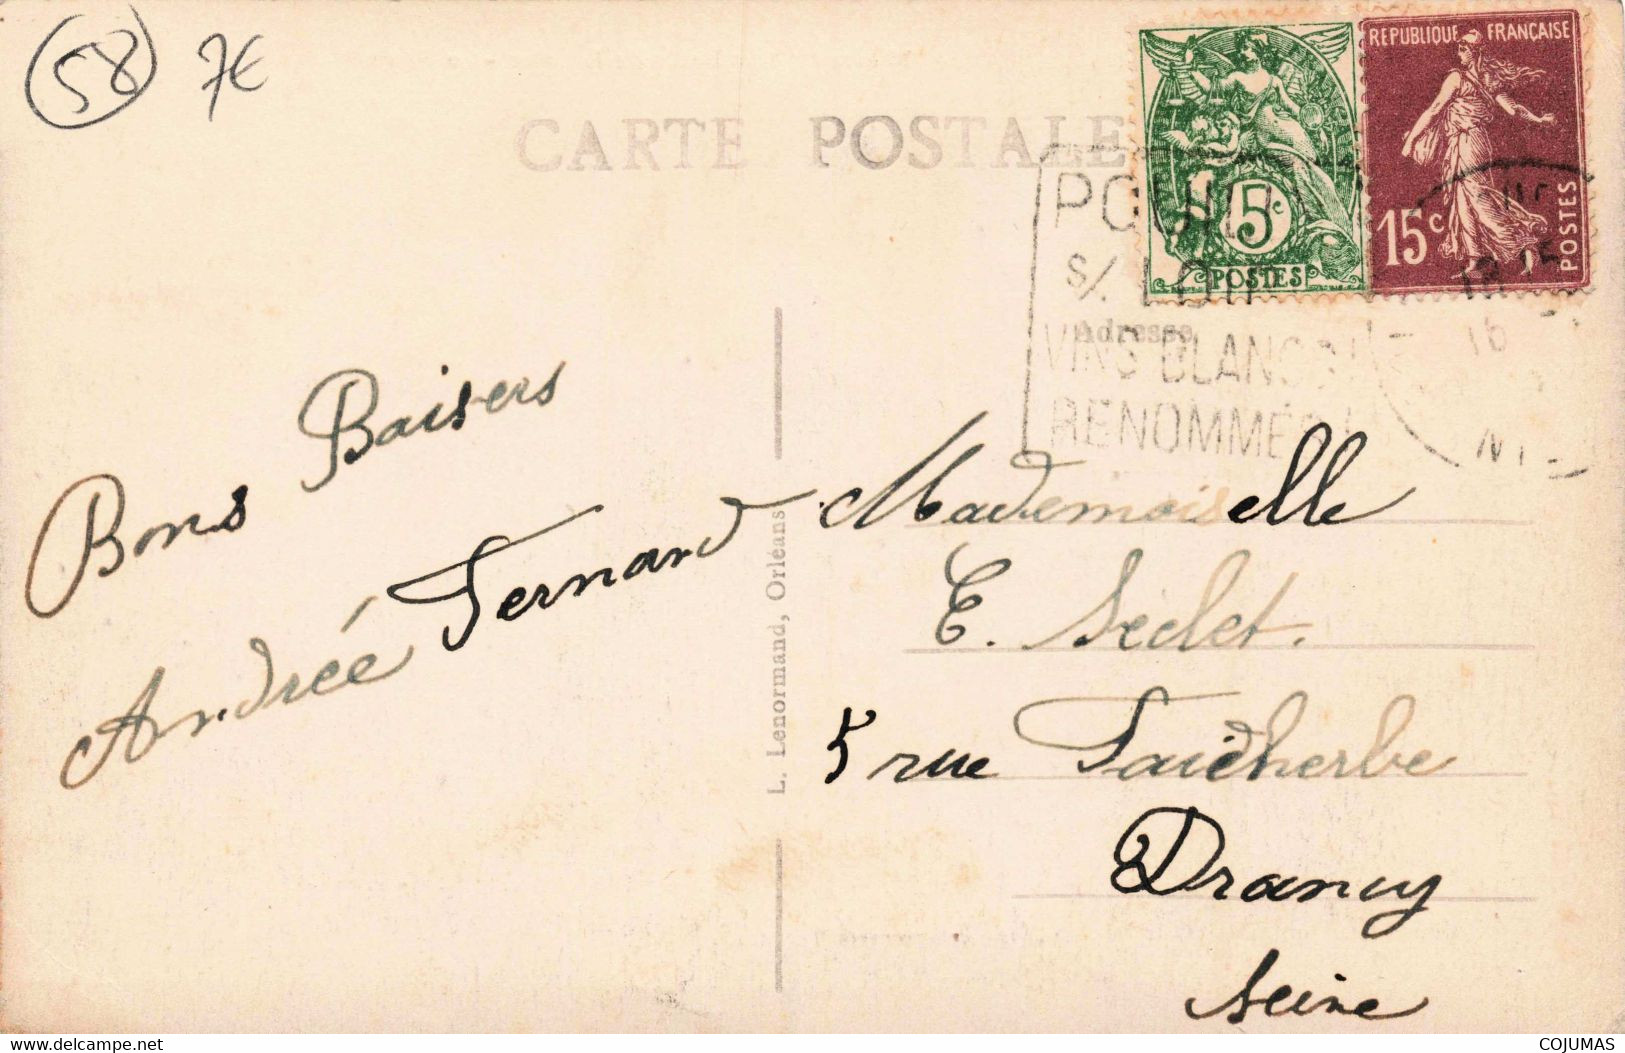 58 7€
CARTE POSTALE
REPUBLIQUE FRANÇAISE
5c
POSTES
15c
POSTES
POUILLY
s/. LOIRE
Adresse
VINS BLANCS
RENOMMÉS
Bons Baisers
Andrée Fernand
Mademoiselle
E. Seclet.
5 rue Faidherbe
Drancy
Seine
L. Lenormand, Orléans
www.delcampe.net
COJUMAS